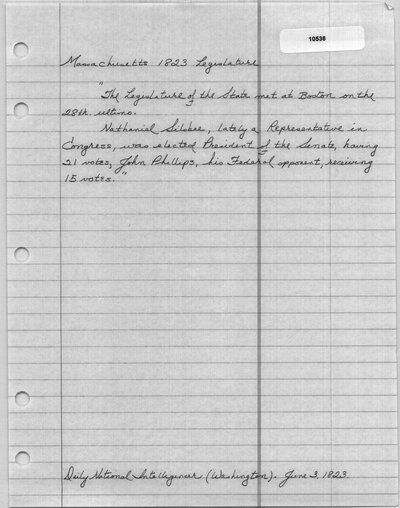 10538
Massachusetts 1823 Legislature
"The Legislature of the State met at Boston on the
28th ultimo.
Nathanial Silsbee, lately a Representative in
Congress, was elected President of the Senate, having
21 votes, John Phillips, his Federal opponent, receiving
15 votes."
Daily National Intelligencer (Washington). June 3, 1823.